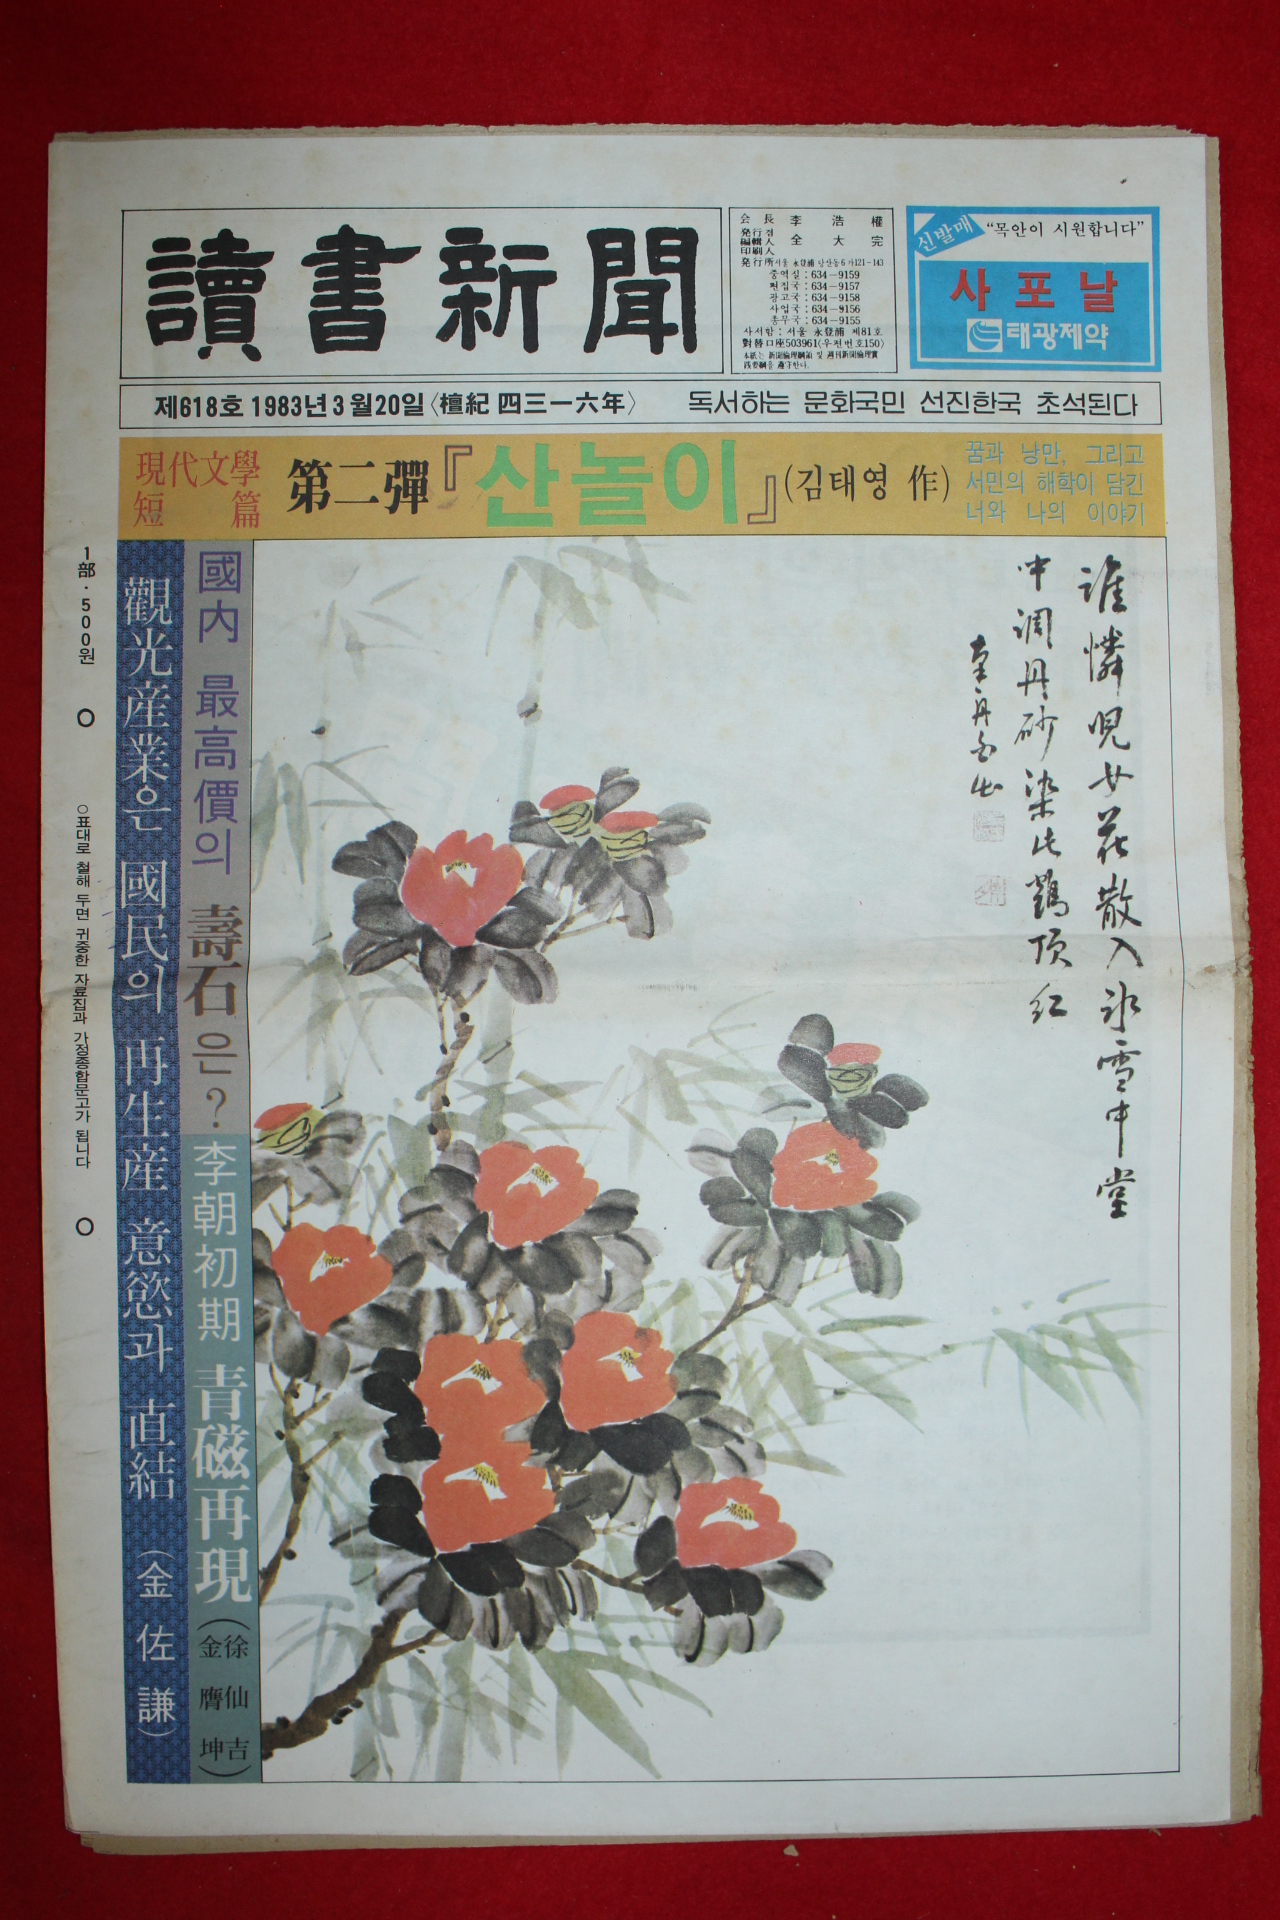 讀書新聞
会長 李浩權
発行兼
編輯人
印刷人
全大完
発行所 서울 永登浦 당산동6가121-143
중역실 : 634-9159
편집국 : 634-9157
광고국 : 634-9158
사업국 : 634-9156
총무국 : 634-9155
사서함 : 서울 永登浦 제81호
對替口座503961(우편번호150)
本紙는 新聞倫理綱領 및 週刊新聞倫理實
践要綱을 遵守한다.
신발매
“목안이 시원합니다”
사포날
태광제약
제618호 1983년 3월20일〈檀紀 四三一六年〉
독서하는 문화국민 선진한국 초석된다
現代文學
短篇
第二彈『산놀이』(김태영 作)
꿈과 낭만, 그리고
서민의 해학이 담긴
너와 나의 이야기
誰憐児女花散入氷雪中堂
中調丹砂染此鶴頂紅
國內 最高價의 壽石은?
李朝初期 青磁再現(徐仙吉 金膺坤)
觀光産業은 國民의 再生産 意慾과 直結 (金佐謙)
1部·500원
○표대로 철해 두면 귀중한 자료집과 가정종합문고가 됩니다